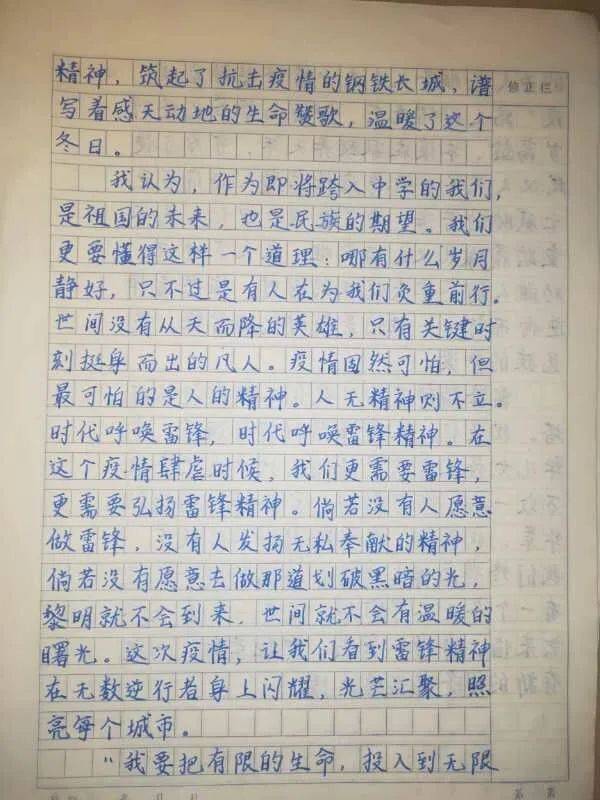 精神，筑起了抗击疫情的钢铁长城，谱
修正栏
写着感天动地的生命赞歌，温暖了这个
冬日。
我认为，作为即将跨入中学的我们，
是祖国的未来，也是民族的期望。我们
更要懂得这样一个道理：哪有什么岁月
静好，只不过是有人在为我们负重前行。
世间没有从天而降的英雄，只有关键时
刻挺身而出的凡人。疫情固然可怕，但
最可怕的是人的精神。人无精神则不立。
时代呼唤雷锋，时代呼唤雷锋精神。在
这个疫情肆虐时候，我们更需要雷锋，
更需要弘扬雷锋精神。倘若没有人愿意
做雷锋，没有人发扬无私奉献的精神，
倘若没有愿意去做那道划破黑暗的光，
黎明就不会到来，世间就不会有温暖的
曙光。这次疫情，让我们看到雷锋精神
在无数逆行者身上闪耀，光芒汇聚，照
亮每个城市。
“我要把有限的生命，投入到无限